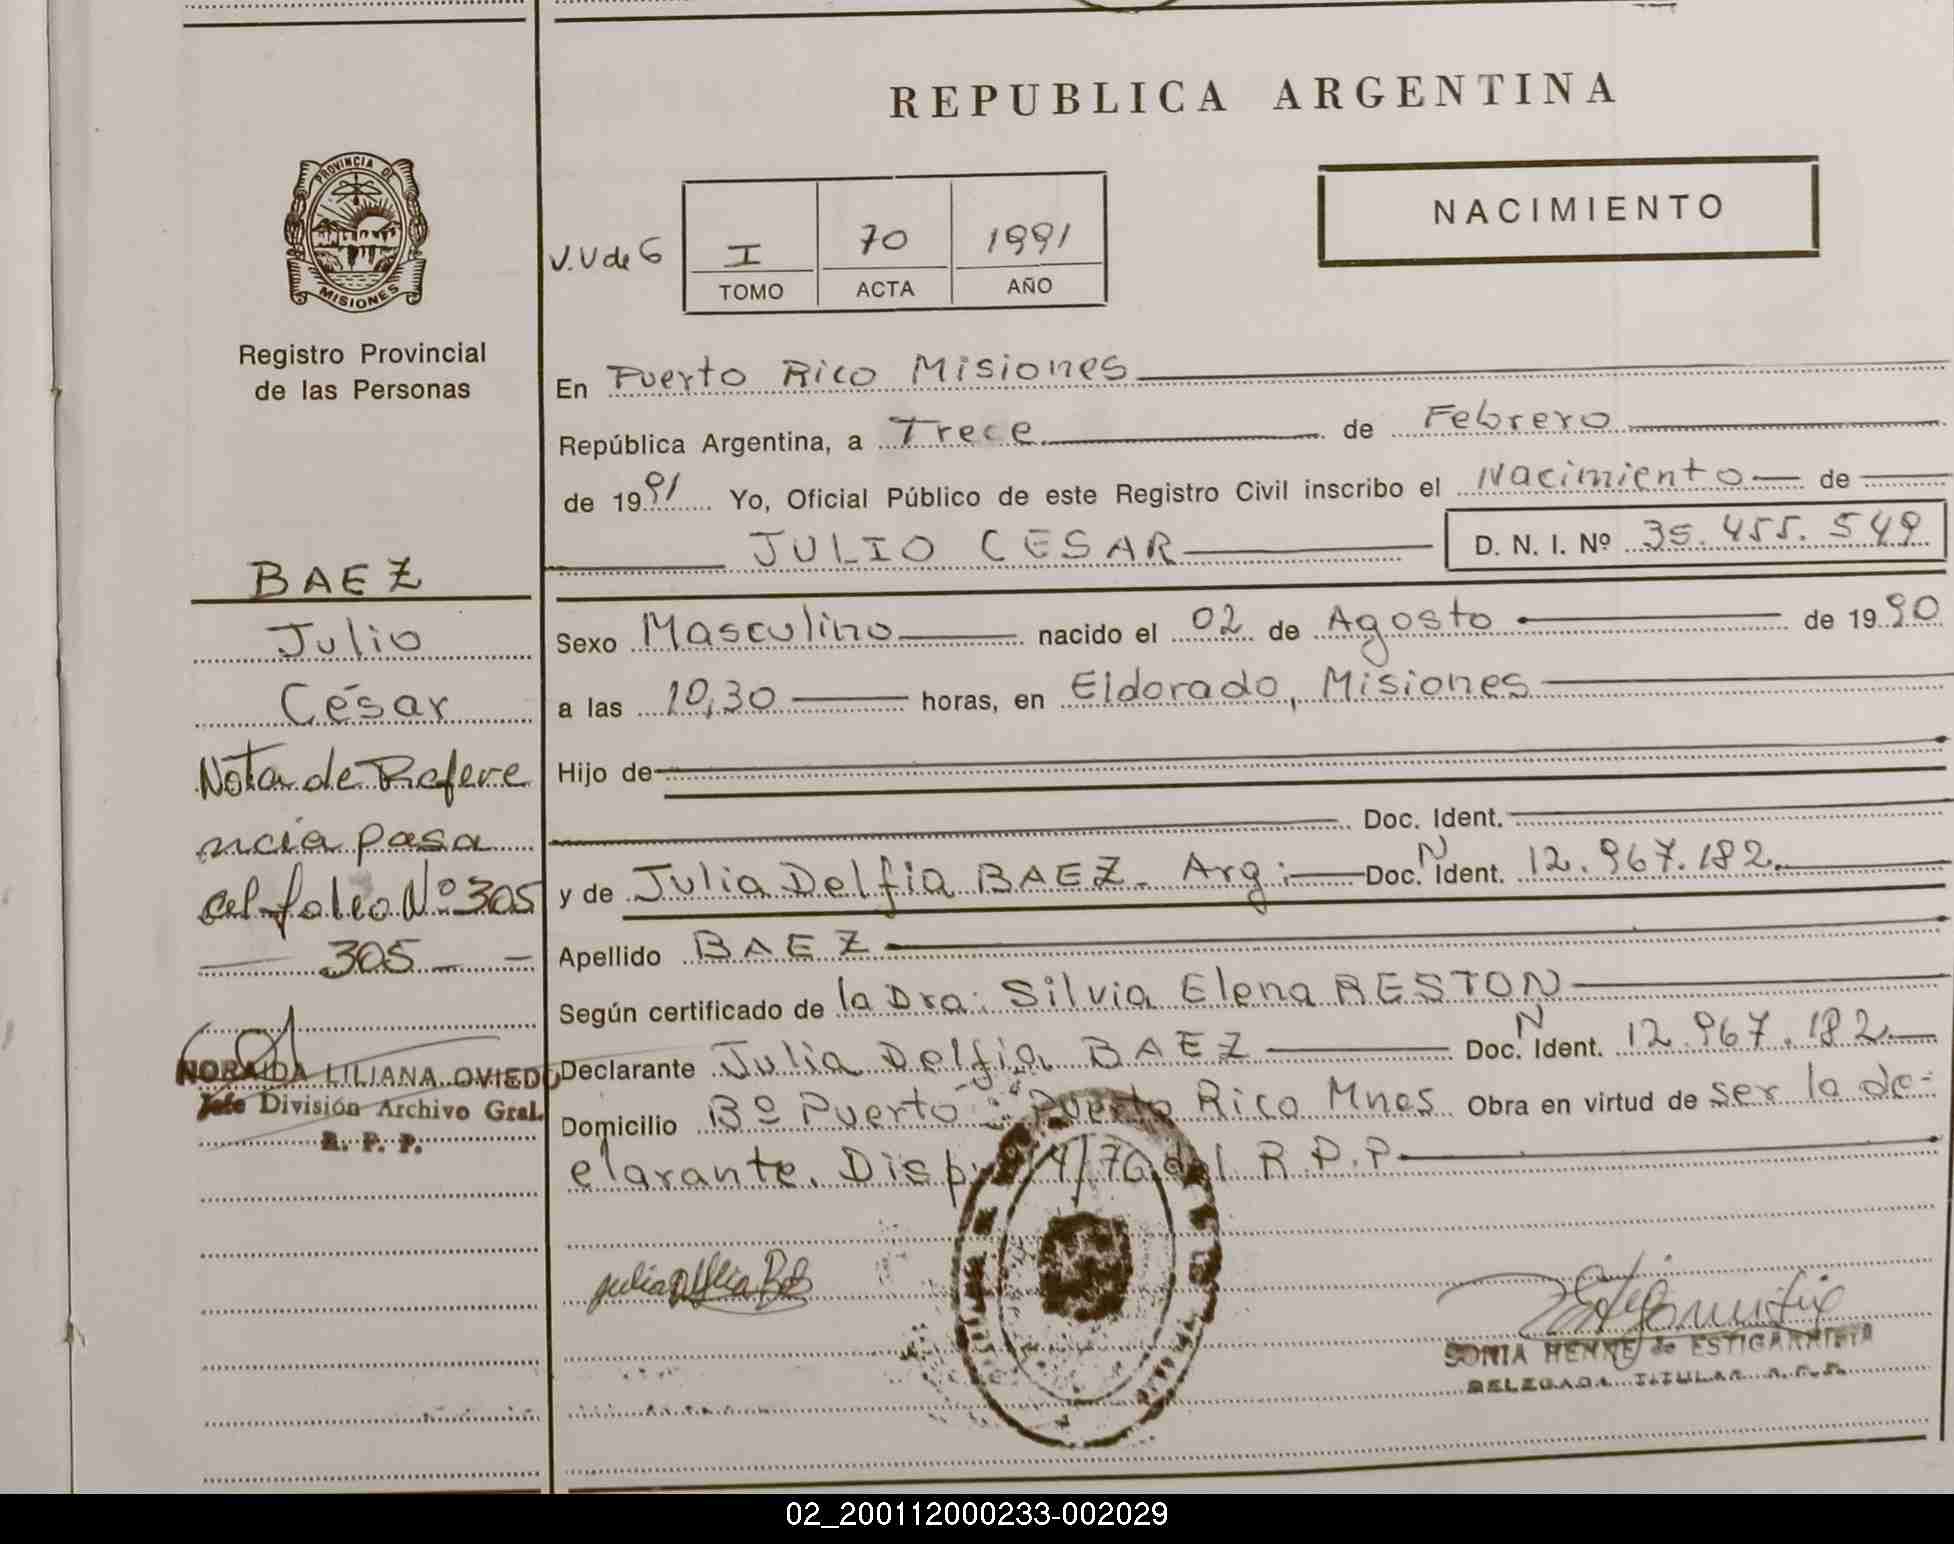 REPUBLICA ARGENTINA
PROVINCIA DE
MISIONES
Registro Provincial
de las Personas
NACIMIENTO
V.V de G
I 70 1991
TOMO ACTA AÑO
En Puerto Rico Misiones
República Argentina, a Trece de Febrero
de 1991 Yo, Oficial Público de este Registro Civil inscribo el Nacimiento de
JULIO CESAR D. N. I. Nº 35.455.549
BAEZ
Julio
César
Nota de Refere
ncia pasa
al folio Nº 305
305
NORAIDA LILIANA OVIEDO
Jefe División Archivo Gral.
R. P. P.
Sexo Masculino nacido el 02 de Agosto de 1990
a las 10,30 horas, en Eldorado, Misiones
Hijo de
Doc. Ident.
y de Julia Delfia BAEZ. Arg: Doc. N Ident. 12.967.182.
Apellido BAEZ
Según certificado de la Dra: Silvia Elena RESTON
Declarante Julia Delfia BAEZ Doc. N Ident. 12.967.182
Domicilio Bº Puerto Puerto Rico Mnes Obra en virtud de ser la de-
clarante. Disp. /76 del R.P.P
Julia Delfia Baez
SONIA HENNE de ESTIGARRIBIA
DELEGADA TITULAR R.P.P.
02_200112000233-002029